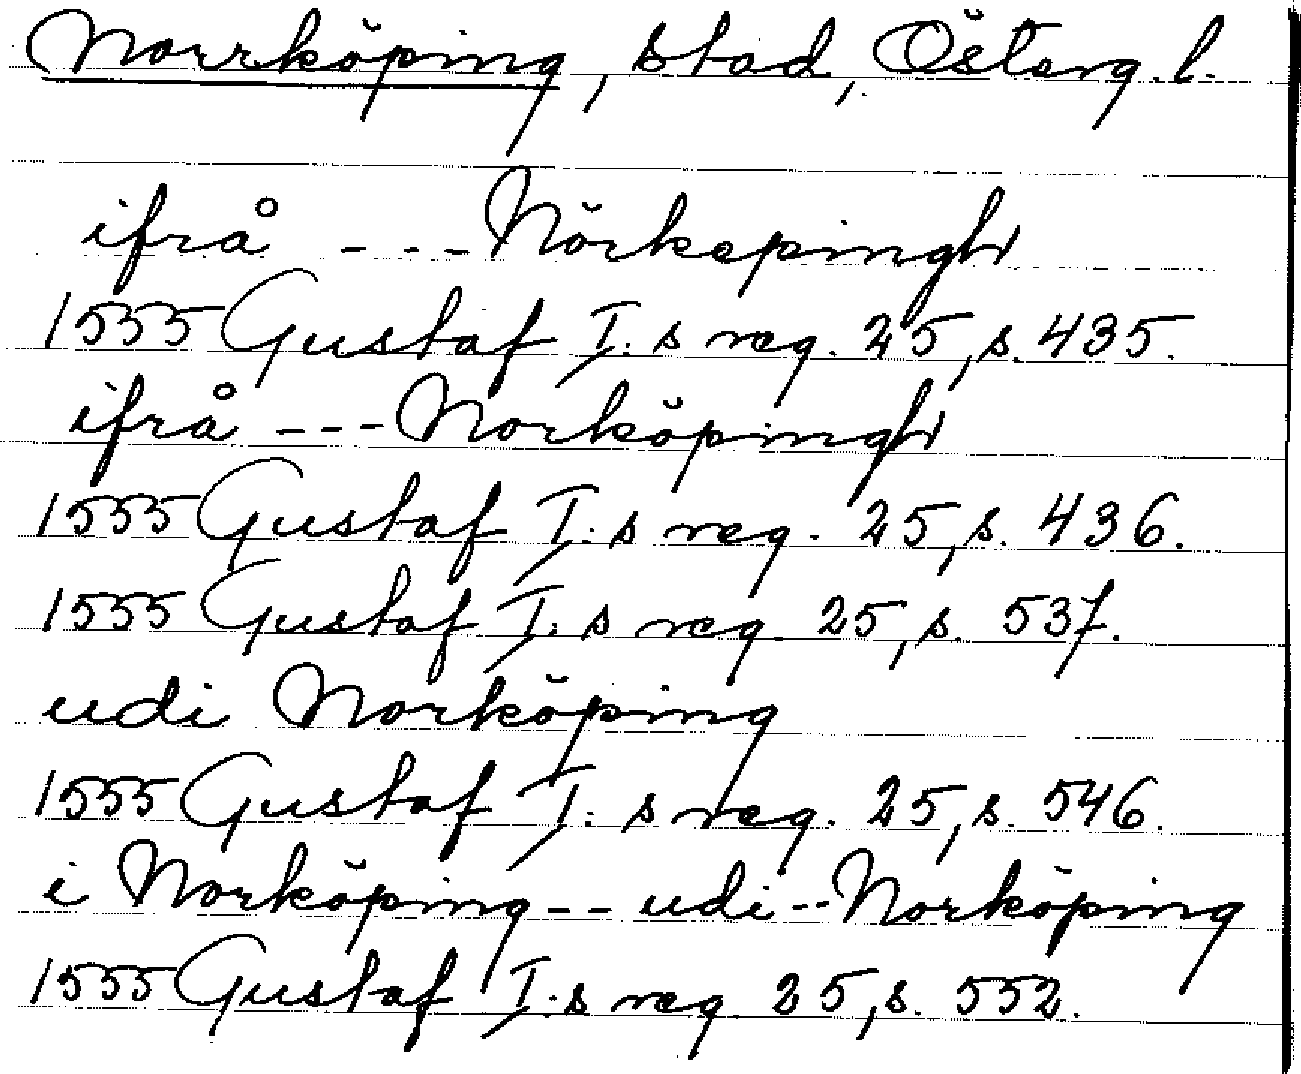 Norrköping, stad, Österg. l.
ifrå - - - Nörkepingh
1555 Gustaf I:s reg. 25, s. 435.
ifrå - - - Norköpingh
1555 Gustaf I:s reg. 25, s. 436.
1555 Gustaf I:s reg. 25, s. 537.
udi Norköping
1555 Gustaf I:s reg. 25, s. 546.
i Norköping - - udi - - Norköping
1555 Gustaf I:s reg 25, s. 552.